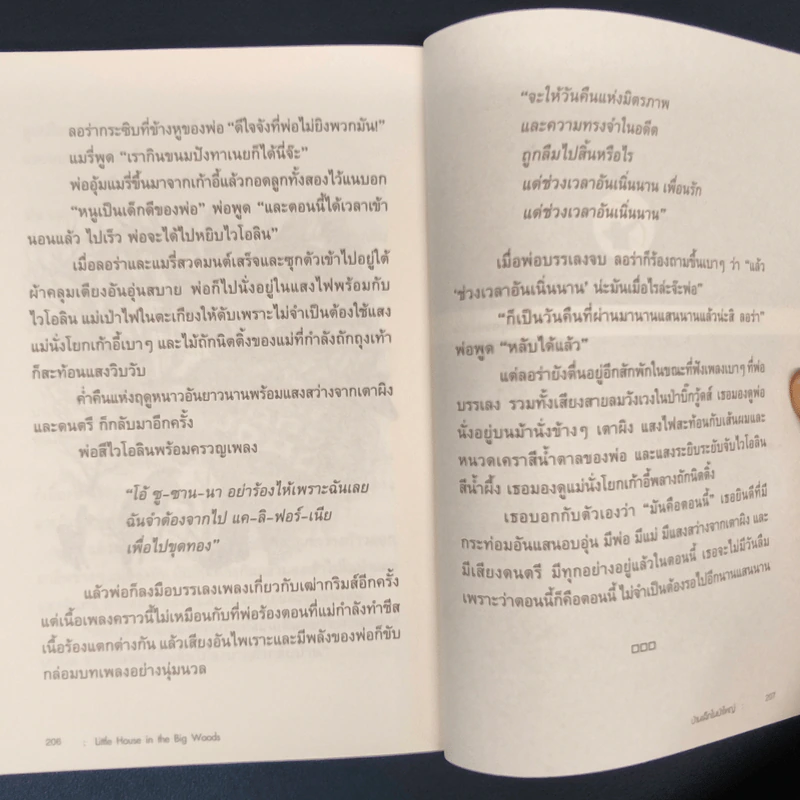 ลอร่ากระซิบที่ข้างหูของพ่อ “ดีใจจังที่พ่อไม่ยิงพวกมัน!”
แมรี่พูด “เรากินขนมปังทาเนยก็ได้นี่จ๊ะ”
พ่ออุ้มแมรี่ขึ้นมาจากเก้าอี้แล้วกอดลูกทั้งสองไว้แนบอก
“หนูเป็นเด็กดีของพ่อ” พ่อพูด “และตอนนี้ได้เวลาเข้า
นอนแล้ว ไปเร็ว พ่อจะได้ไปหยิบไวโอลิน”
เมื่อลอร่าและแมรี่สวดมนต์เสร็จและซุกตัวเข้าไปอยู่ใต้
ผ้าคลุมเตียงอันอุ่นสบาย พ่อก็ไปนั่งอยู่ในแสงไฟพร้อมกับ
ไวโอลิน แม่เป่าไฟในตะเกียงให้ดับเพราะไม่จำเป็นต้องใช้แสง
แม่นั่งโยกเก้าอี้เบาๆ และไม้ถักนิตติ้งของแม่ที่กำลังถักถุงเท้า
ก็สะท้อนแสงวิบวับ
ค่ำคืนแห่งฤดูหนาวอันยาวนานพร้อมแสงสว่างจากเตาผิง
และดนตรี ก็กลับมาอีกครั้ง
พ่อสีไวโอลินพร้อมครวญเพลง
“โอ้ ซู-ซาน-นา อย่าร้องไห้เพราะฉันเลย
ฉันจำต้องจากไป แค-ลิ-ฟอร์-เนีย
เพื่อไปขุดทอง”
แล้วพ่อก็ลงมือบรรเลงเพลงเกี่ยวกับเฒ่ากริมส์อีกครั้ง
แต่เนื้อเพลงคราวนี้ไม่เหมือนกับที่พ่อร้องตอนที่แม่กำลังทำชีส
เนื้อร้องแตกต่างกัน แล้วเสียงอันไพเราะและมีพลังของพ่อก็ขับ
กล่อมบทเพลงอย่างนุ่มนวล
206 : Little House in the Big Woods
“จะให้วันคืนแห่งมิตรภาพ
และความทรงจำในอดีต
ถูกลืมไปสิ้นหรือไร
แต่ช่วงเวลาอันเนิ่นนาน เพื่อนรัก
แต่ช่วงเวลาอันเนิ่นนาน”
เมื่อพ่อบรรเลงจบ ลอร่าก็ร้องถามขึ้นเบาๆ ว่า “แล้ว
‘ช่วงเวลาอันเนิ่นนาน’ น่ะมันเมื่อไรล่ะจ๊ะพ่อ”
“ก็เป็นวันคืนที่ผ่านมานานแสนนานแล้วน่ะสิ ลอร่า”
พ่อพูด “หลับได้แล้ว”
แต่ลอร่ายังตื่นอยู่อีกสักพักในขณะที่ฟังเพลงเบาๆ ที่พ่อ
บรรเลง รวมทั้งเสียงสายลมวังเวงในป่าบิ๊กวู้ดส์ เธอมองดูพ่อ
นั่งอยู่บนม้านั่งข้างๆ เตาผิง แสงไฟสะท้อนกับเส้นผมและ
หนวดเคราสีน้ำตาลของพ่อ และแสงระยิบระยับจับไวโอลิน
สีน้ำผึ้ง เธอมองดูแม่นั่งโยกเก้าอี้พลางถักนิตติ้ง
เธอบอกกับตัวเองว่า “มันคือตอนนี้” เธอยินดีที่มี
กระท่อมอันแสนอบอุ่น มีพ่อ มีแม่ มีแสงสว่างจากเตาผิง และ
มีเสียงดนตรี มีทุกอย่างอยู่แล้วในตอนนี้ เธอจะไม่มีวันลืม
เพราะว่าตอนนี้ก็คือตอนนี้ ไม่จำเป็นต้องรอไปอีกนานแสนนาน
□□□
บ้านเล็กในป่าใหญ่ : 207